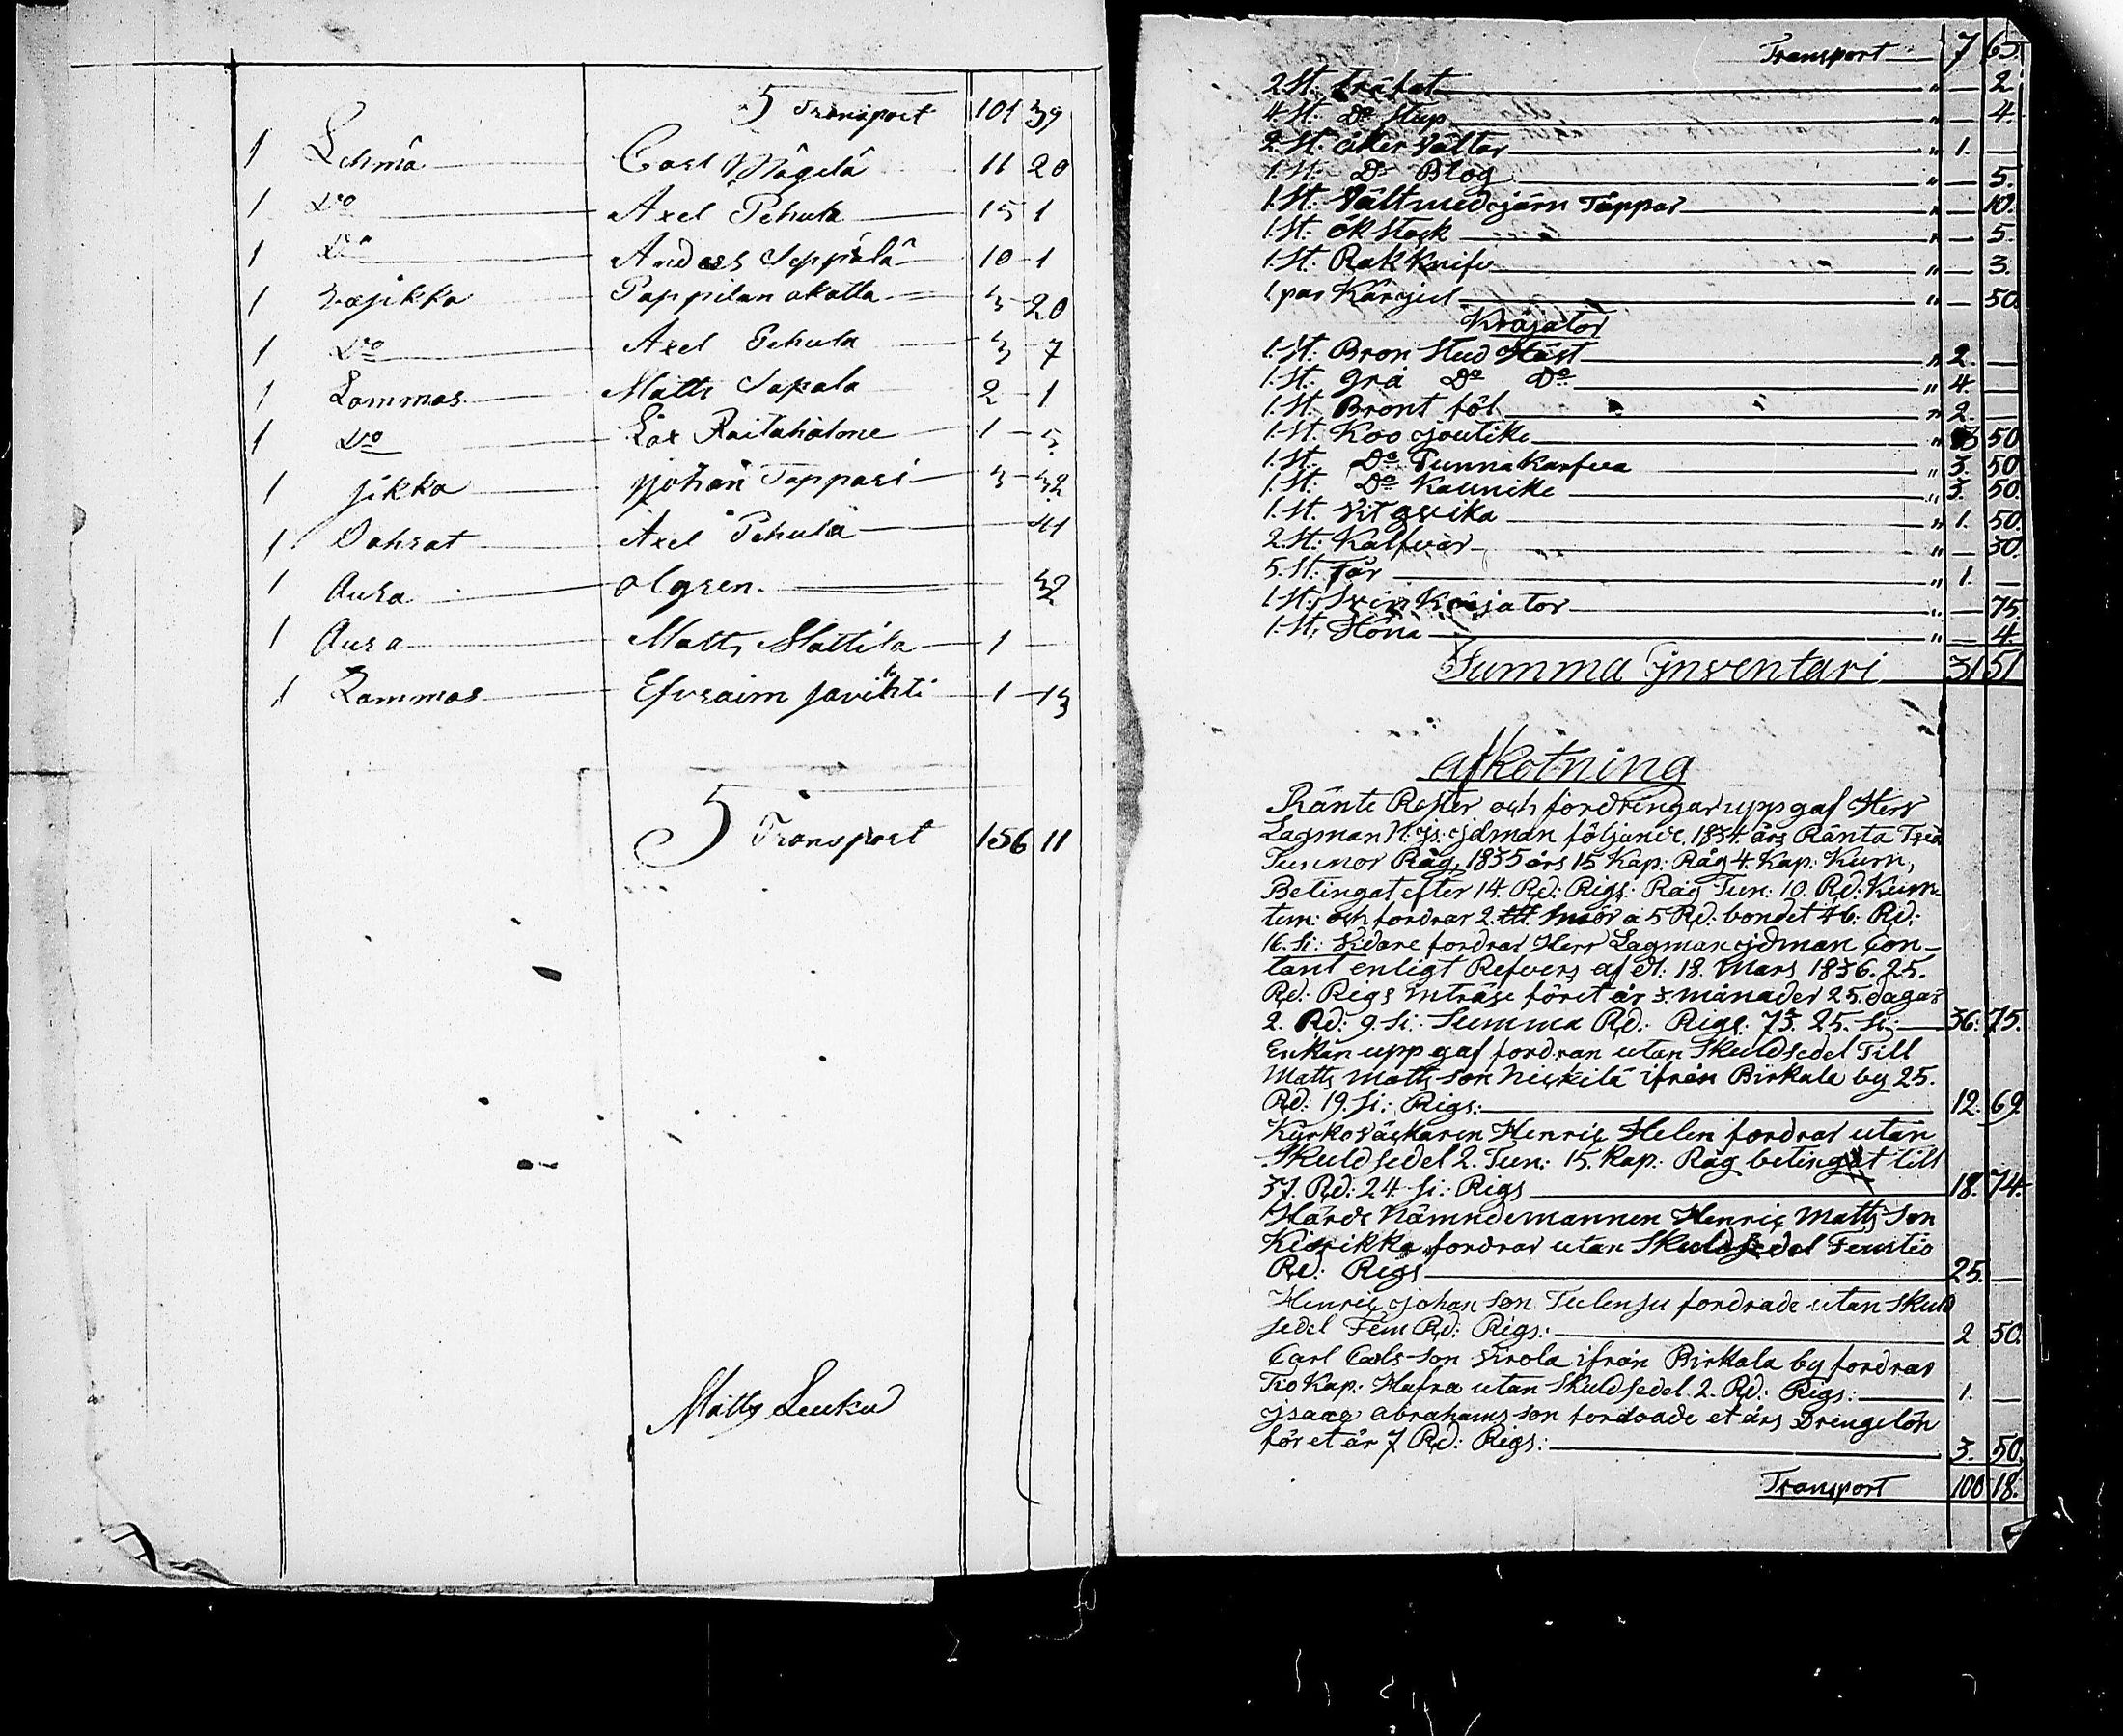 5 Transport 101 39
1 Lehmä Carl Mägelä 11 20
1 Do Axel Pehula 15 1
1 Do Anders Seppälä 10 1
1 Pappilan akalla 3 20
1 Do Axel Pehula 3 7
1 Lammas Matts Sapala 2 1
1 Do 1 5
1 jikko johan Tappari 3 32
1 Axel Pehula 41
1 Aura olgren. 32
1 Aura Matts Mattila 1 —
1 Lammas Efvraim 1 13
5 Transport 156 11
Matts Leuku
Transport 7 65.
2. St: träfat " — 2
4. St: Do Stup " — 4.
2. St: åker Vältar " 1. —
1. St: Do Blog " — 5.
1. St: Vält med järn Täppar " — 10.
1. St: ök Stock " — 5.
1. St: Rak Knifv " — 3.
1. par Kärgiel " — 50.
Kräjator
1. St: Bron Stud Häst " 2. —
1. St: grå Do Do " 4. —
1. St: Bront föl " 2. —
1. St: Koo joutike " 3 50
1. St: Do Punnakarfva " 3. 50
1. St: Do Kaunike " 3. 50.
1. St. Vit qvika " 1. 50.
2. St: Kalfvar " — 30.
5. St: Får " 1. —
1. St: Svin Kräjator " — 75.
1. St: Höna " — 4.
Summa jnventari 31 51
afkotning
Ränte Rester och fordringar upp gaf Herr
Lagman N. js: jdman följande. 1834. års Ränta Tree
Tunnor Råg, 1835 års 15 Kap: Råg 4. Kap: Kurn,
Betingat efter 14. Rd: Rigs: Råg Tun: 10. Rd: Kurn
tun: och fordrar 2. ttt. Smör a 5 Rd: bondet 46: Rd:
16. Si: Vidare fordrar Herr Lagman jdman Con-
tant enligt Refvers af d: 18. Mars 1836. 25.
Rd: Rigs inträse för et år 3. månader 25. dagar
2. Rd: 9. Si: Summa Rd: Rigs: 73. 25. Si: 36. 75.
Enkan upp gaf fordran utan Skuldsedel Till
Matts Matts son Niskilä ifrån Birkala by 25.
Rd: 19. Si: Rigs: 12. 69
Kyrkoväcktaren Henric Helen fordrar utan
Skuldsedel 2. Tun: 15. Kap: Råg betingat till
37. Rd: 24 Si: Rigs 18. 74.
Härds Nämndemannen Henric Matts Son
fordrar utan Skuldsedel Femtio
Rd: Rigs 25. —
Henric johan son Teulensu fordrade utan Skuld
sedel Fem Rd: Rigs: 2 50.
Carl Carls-son Virola ifrån Birkala by fordrar
Tio Kap: Hafra utan Skuldsedel 2. Rd: Rigs: 1. —
jsaac abrahams son fordrade et års Drengelön
för et år 7 Rd: Rigs: 3. 50.
Transport 100 18.